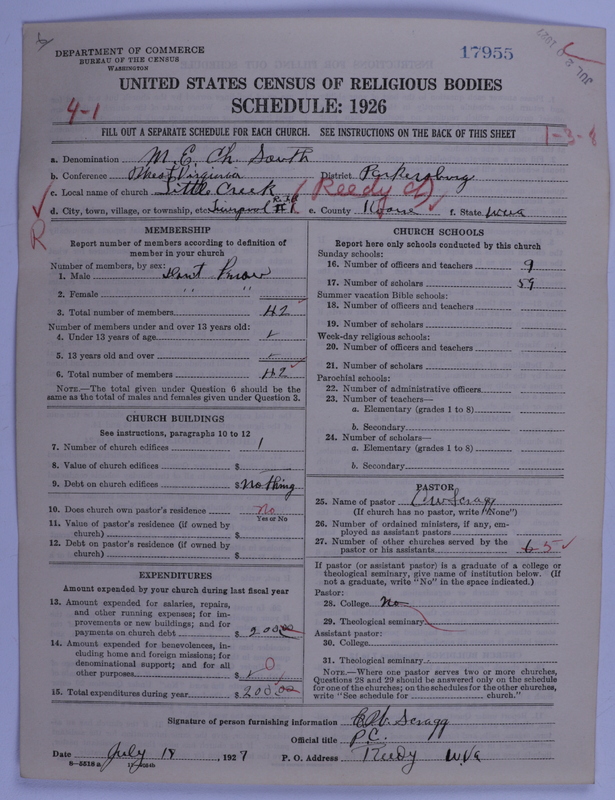 DEPARTMENT OF COMMERCE
BUREAU OF THE CENSUS
WASHINGTON
17955
JUL 2 1927
UNITED STATES CENSUS OF RELIGIOUS BODIES
SCHEDULE: 1926
4-1
FILL OUT A SEPARATE SCHEDULE FOR EACH CHURCH. SEE INSTRUCTIONS ON THE BACK OF THIS SHEET
1-3-8
a. Denomination M. E. Ch. South
b. Conference West Virginia District Parkersburg
c. Local name of church Little Creek (Reedy C)
d. City, town, village, or township, etc. Liverpool #1 e. County Roane f. State W va
R
MEMBERSHIP
Report number of members according to definition of member in your church
Number of members, by sex:
1. Male Dont Know
2. Female " "
3. Total number of members 42
Number of members under and over 13 years old:
4. Under 13 years of age
5. 13 years old and over
6. Total number of members 42
NOTE.—The total given under Question 6 should be the same as the total of males and females given under Question 3.
CHURCH BUILDINGS
See instructions, paragraphs 10 to 12
7. Number of church edifices 1
8. Value of church edifices $
9. Debt on church edifices $ Nothing
10. Does church own pastor's residence no
Yes or No
11. Value of pastor's residence (if owned by church) $
12. Debt on pastor's residence (if owned by church) $
EXPENDITURES
Amount expended by your church during last fiscal year
13. Amount expended for salaries, repairs, and other running expenses; for improvements or new buildings; and for payments on church debt $ 200.00
14. Amount expended for benevolences, including home and foreign missions; for denominational support; and for all other purposes $ 0
15. Total expenditures during year $ 200.00
CHURCH SCHOOLS
Report here only schools conducted by this church
Sunday schools:
16. Number of officers and teachers 9
17. Number of scholars 59
Summer vacation Bible schools:
18. Number of officers and teachers
19. Number of scholars
Week-day religious schools:
20. Number of officers and teachers
21. Number of scholars
Parochial schools:
22. Number of administrative officers
23. Number of teachers—
a. Elementary (grades 1 to 8)
b. Secondary
24. Number of scholars—
a. Elementary (grades 1 to 8)
b. Secondary
PASTOR
25. Name of pastor C W Scragg
(If church has no pastor, write "None")
26. Number of ordained ministers, if any, employed as assistant pastors
27. Number of other churches served by the pastor or his assistants 6 5
If pastor (or assistant pastor) is a graduate of a college or theological seminary, give name of institution below. (If not a graduate, write "No" in the space indicated.)
Pastor:
28. College No
29. Theological seminary
Assistant pastor:
30. College
31. Theological seminary
NOTE.—Where one pastor serves two or more churches, Questions 28 and 29 should be answered only on the schedule for one of the churches; on the schedules for the other churches, write "See schedule for church."
Signature of person furnishing information C. W. Scragg
Official title P.C.
Date July 18, 1927 P. O. Address Reedy W.Va
8-5518 a